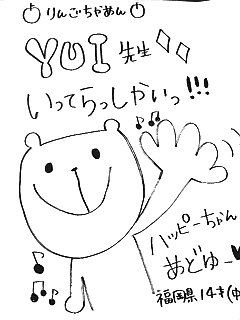 りんごちゃあん
YUI先生
いってらっしゃいっ!!!
ハッピーちゃん
あどゆー
福岡県14才(中